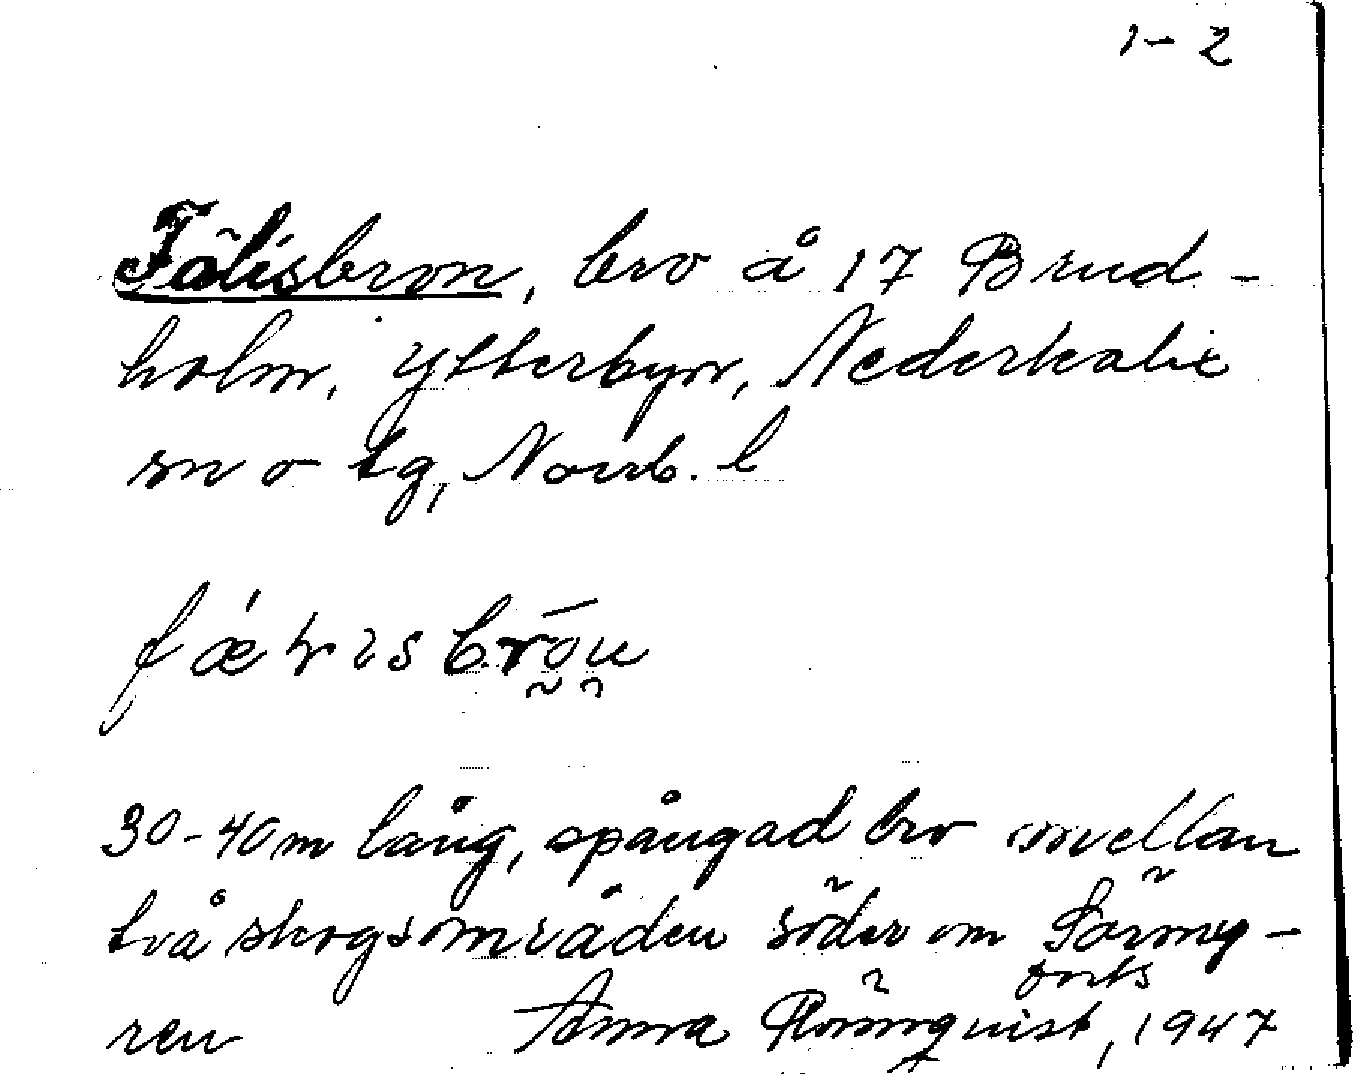 1-2
Fälisbron, bro å 17 Brud-
holm, Ytterbyn, Nederkalix
sn o tg, Norrb. l
30-40 m lång, spångad bro mellan
två skogsområden söder om Sörmy-
ren
forts
Anna Rönnquist, 1947